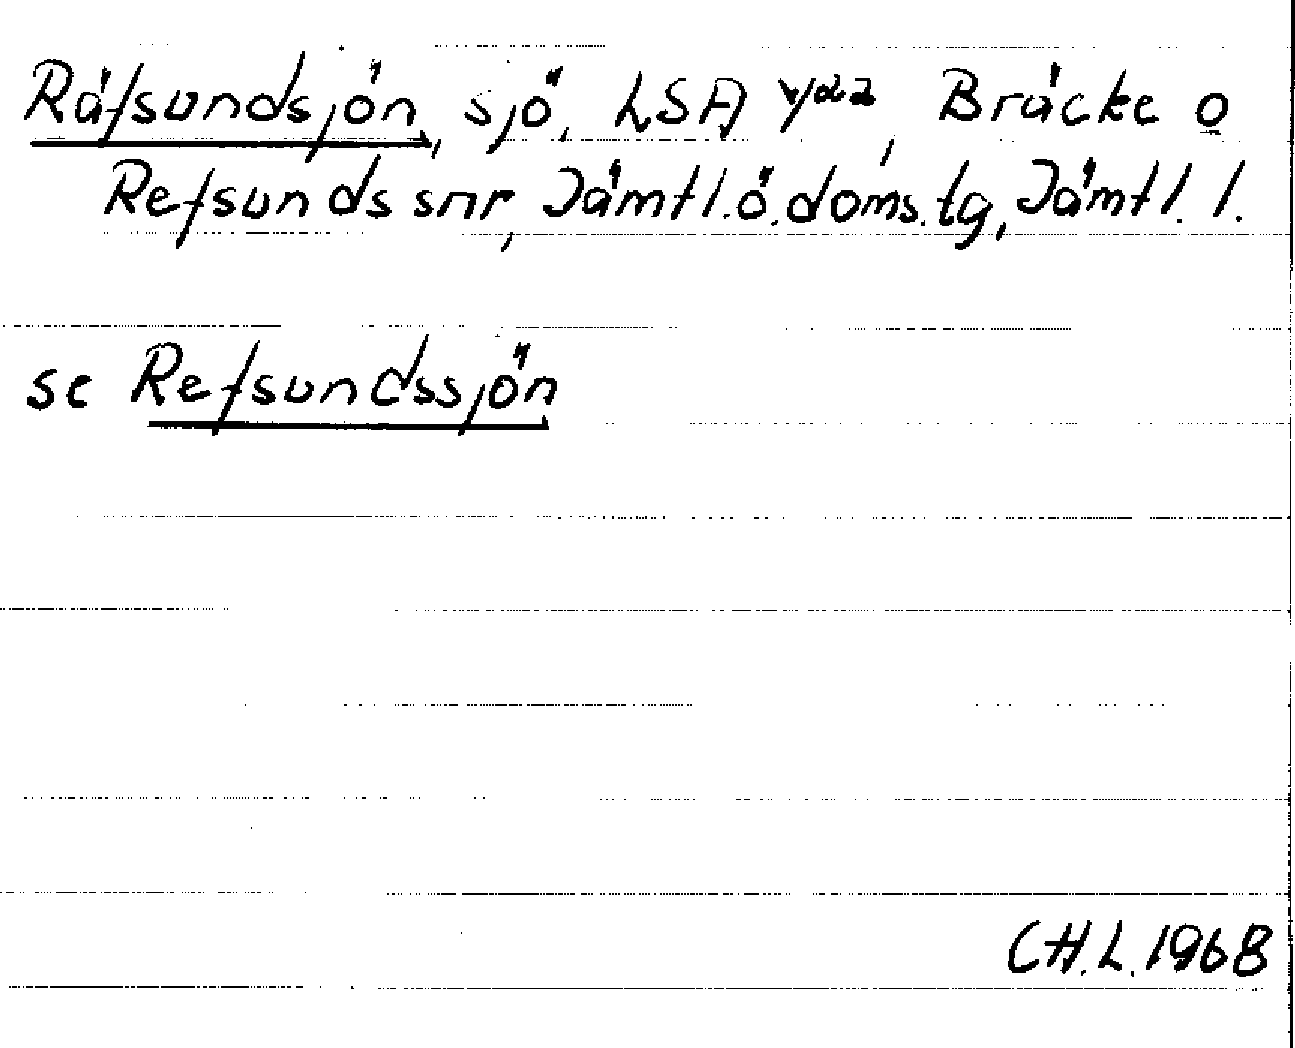 Räfsundsjön, sjö, LSA, Bräcke o
Refsunds snr, Jämtl. ö. doms. tg, Jämtl. l.
se Refsundssjön
CH.L. 1968